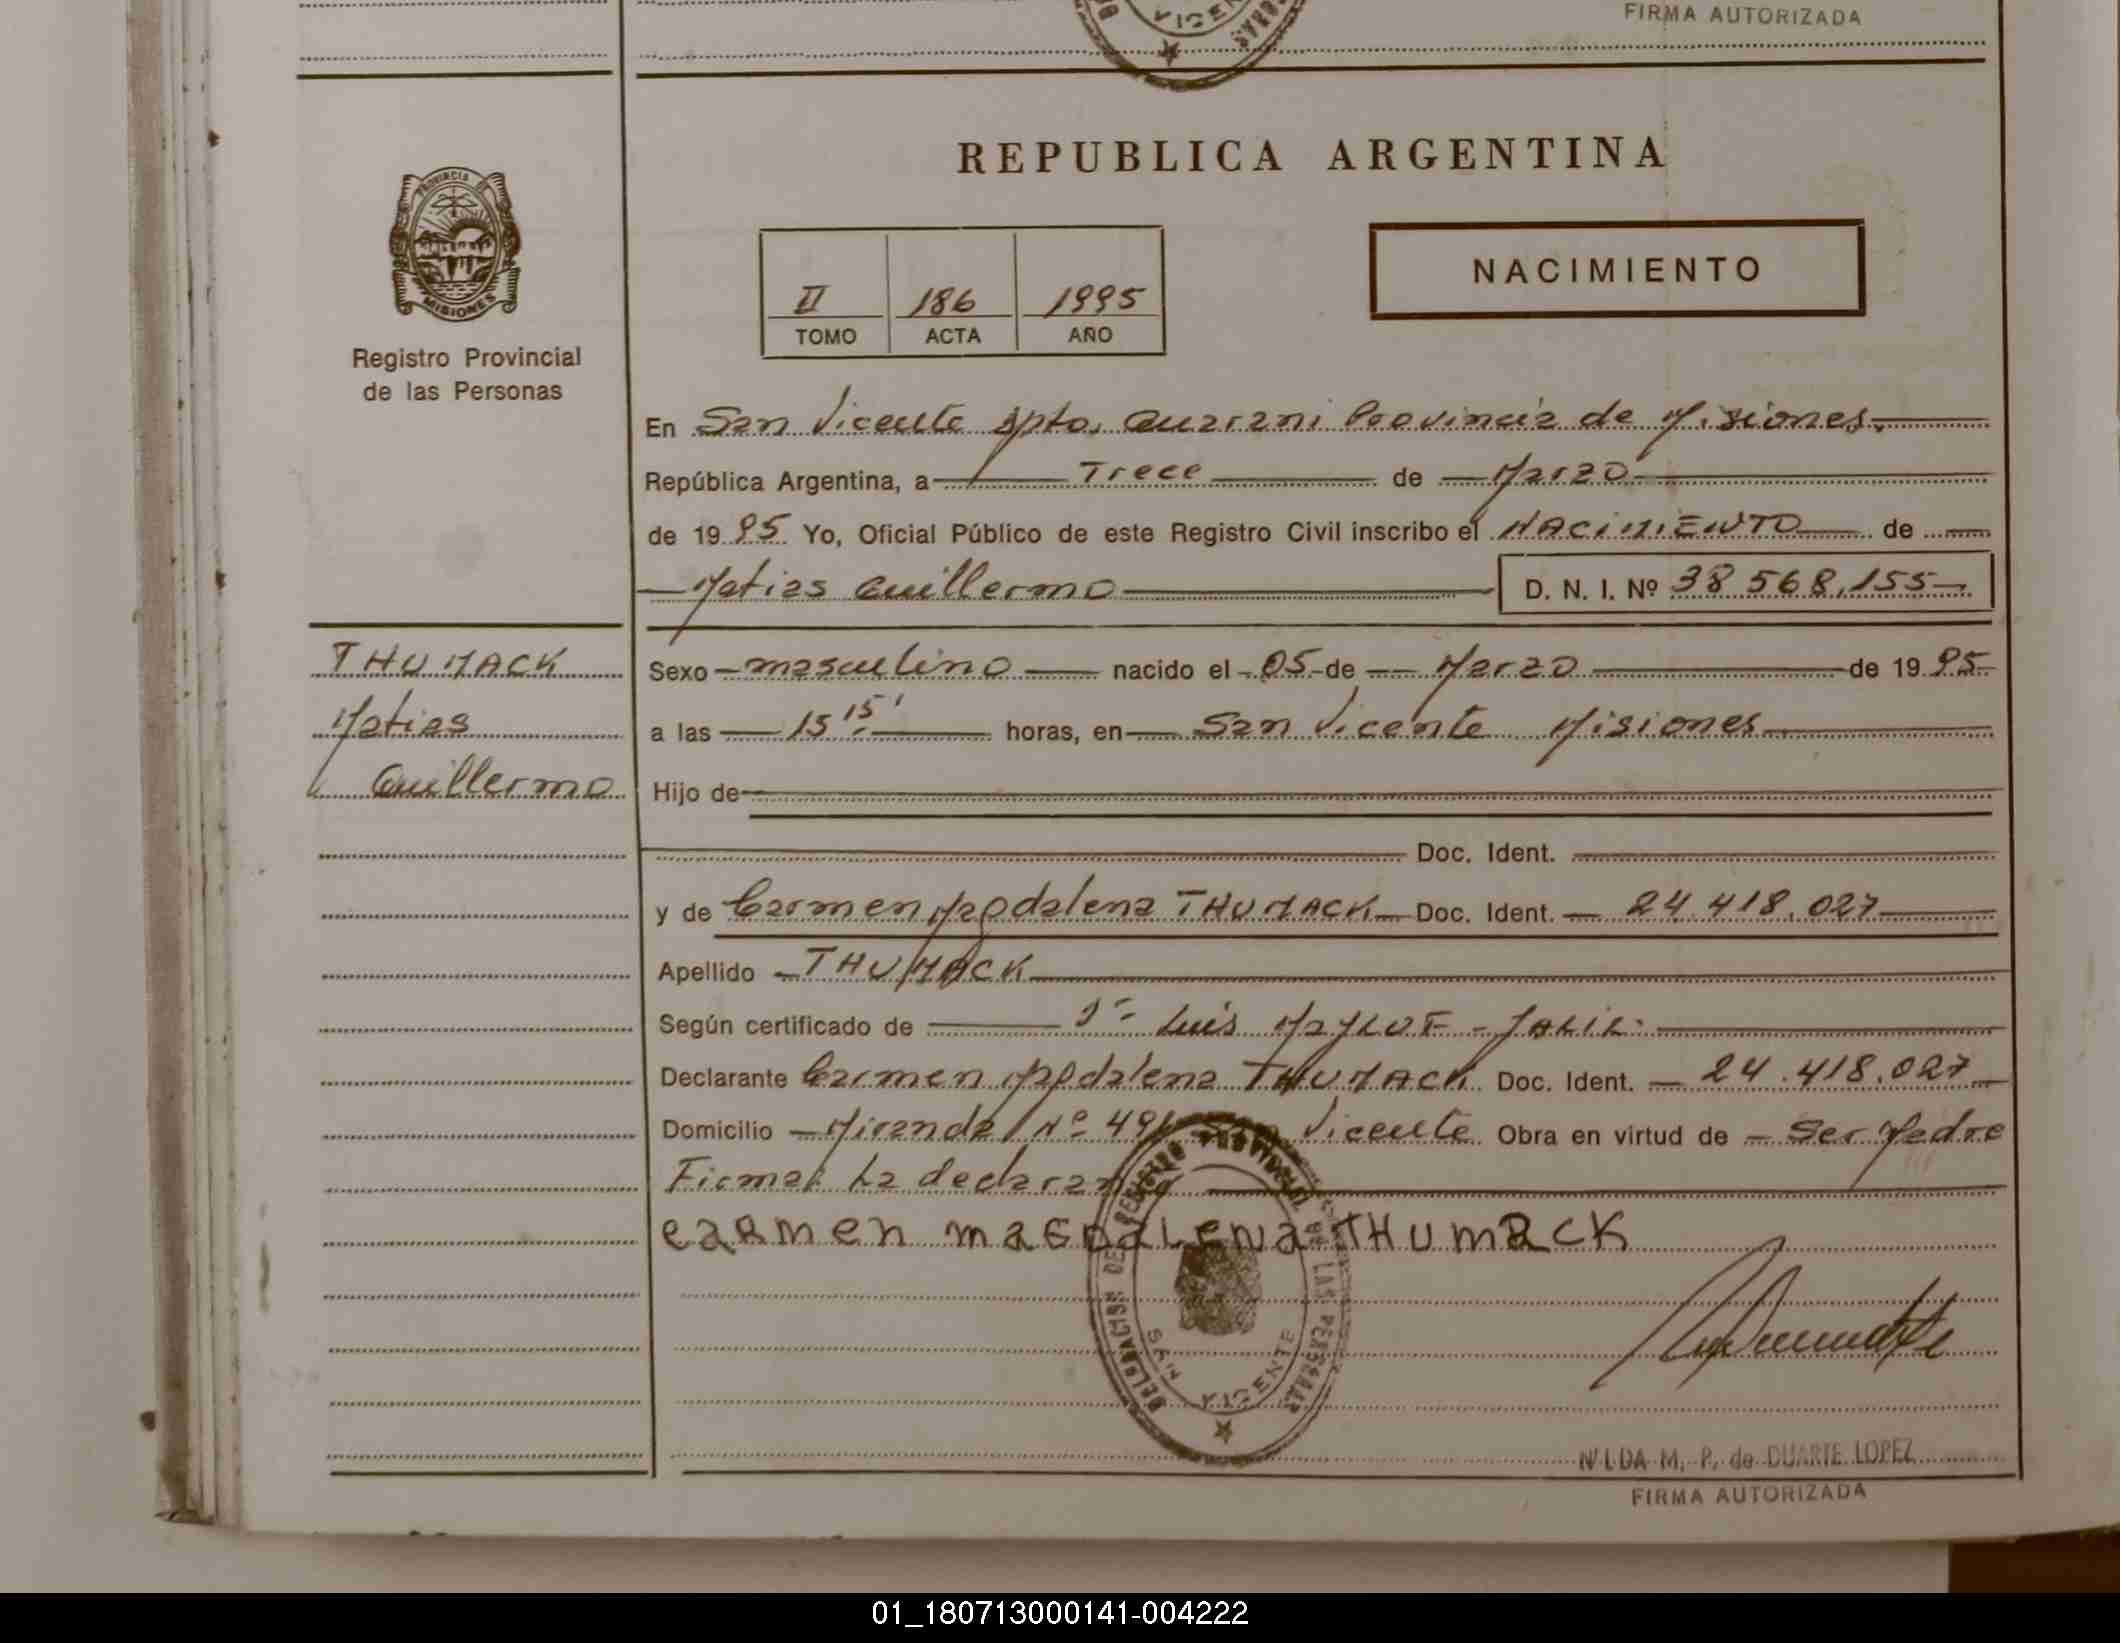 FIRMA AUTORIZADA
VICEN
REPUBLICA ARGENTINA
PROVINCIA DE
MISIONES
Registro Provincial
de las Personas
II 186 1995
TOMO ACTA AÑO
NACIMIENTO
En San Vicente Dpto. Guarani Provincia de Misiones.
República Argentina, a Trece de Marzo
de 1995 Yo, Oficial Público de este Registro Civil inscribo el NACIMIENTO de
Matias Guillermo D. N. I. Nº 38 568.155
THUMACK
Matias
Guillermo
Sexo masculino nacido el 05 de Marzo de 1995
a las 15 15' horas, en San Vicente Misiones
Hijo de
Doc. Ident.
y de Carmen Magdalena THUMACK Doc. Ident. 24.418.027
Apellido THUMACK
Según certificado de Luis
Declarante Carmen Magdalena THUMACK Doc. Ident. 24.418.027
Domicilio Miranda Nº Vicente Obra en virtud de Ser Madre
Firma La
CARMEN MAGDALENA THUMACK
DELEGACION DEL REGISTRO PROVINCIAL DE LAS PERSONAS
SAN VICENTE
NILDA M. P. de DUARTE LOPEZ
FIRMA AUTORIZADA
01_180713000141-004222